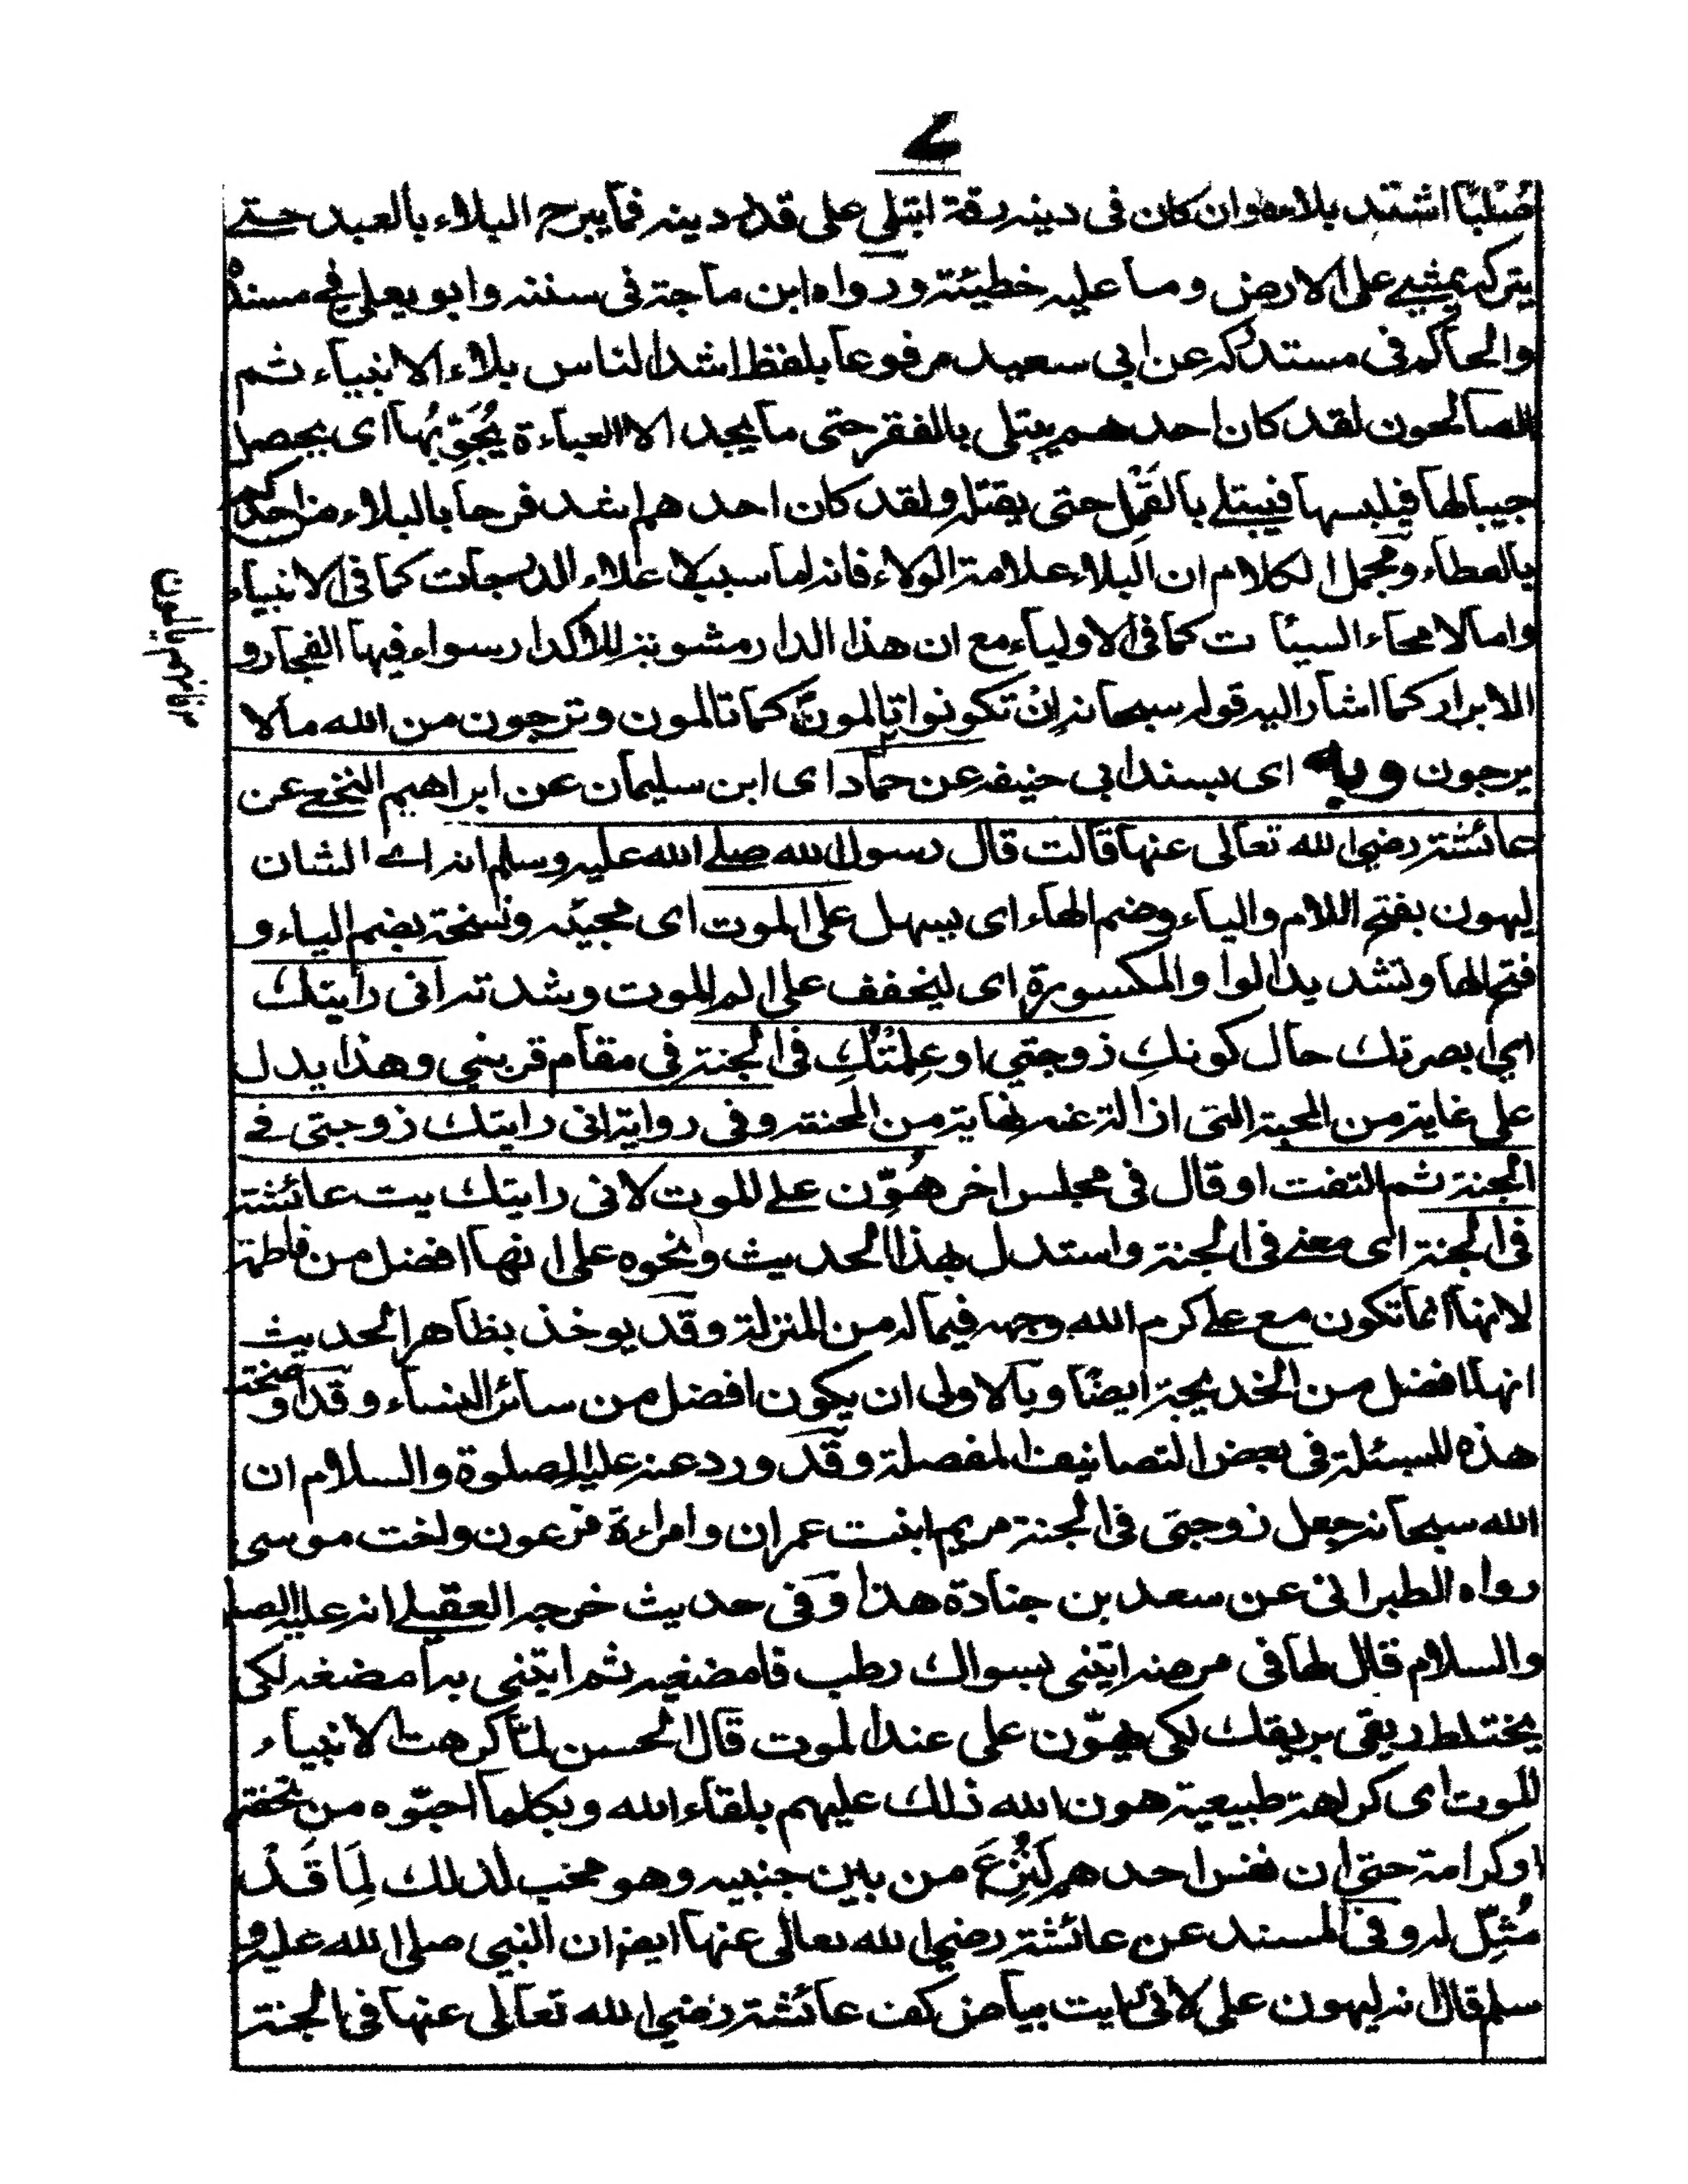 ۷
صُلْبًا اشتد بلاءه وان كان فى دينه رقة ابتلى على قدر دينه فما يبرح البلاء بالعبد حتے
يتركه يمشے على الارض وما عليه خطيئة ورواه ابن ماجة فى سننه وابو يعلى فے مسنده
والحاكم فى مستدركه عن ابى سعيد مرفوعا بلفظ اشد الناس بلاء الانبياء ثم
الصالحون لقد كان احدهم يبتلى بالفقر حتى ما يجد الا العباءة يُجَوِّبُها اى يحصل
جيبا لها فيلبسها فيبتلے بالقَمْل حتى يقتله ولقد كان احدهم اشد فرحا بالبلاء من احدكم
بالعطاء ومجمل الكلام ان البلاء علامة الولاء فانه اما سبب لاعلاء الدرجات كما فى الانبياء
واما لامحاء السيئات كما فى الاولياء مع ان هذا الدار مشوبة للاكدار سواء فيها الفجار و
الابرار كما اشار اليه قوله سبحانه اِنْ تكونوا تالمون كما تالمون وترجون من الله مالا
فانهم يالمون
يرجون وبه اى بسند ابى حنيفه عن حماد اى ابن سليمان عن ابراهيم النخعے عن
عائشة رضى الله تعالى عنها قالت قال رسول الله صلے الله عليه وسلم انه اے الشان
ليهون بفتح اللام والياء وضم الهاء اى يسهل على الموت اى مجيئه ونسخة بضم الياء و
فتح الها وتشديد الواو المكسورة اى ليخفف على الم الموت وشدته انى رايتك
اى ابصرتك حال كونكِ زوجتى او عِلمتُكِ فى الجنة فى مقام قربنى وهذا يدل
على غاية من المحبة التى ازالة غمه نهاية من المحنة وفى رواية انى رايتك زوجتى فے
الجنة ثم التفت او قال فى مجلس اخر هُوِّن علے الموت لانى رايتك يت عائشة
فى الجنة اى معے فى الجنة واستدل بهذا الحديث ونحوه على انها افضل من فاطمة
لانها انما تكون مع علے كرم الله وجهه فيما له من المنزلة وقد يوخذ بظاهر الحديث
انها افضل من الخديجة ايضًا وبالاولى ان يكون افضل من سائر النساء وقد اوضحت
هذه المسئلة فى بعض التصانيف المفصلة وقد ورد عنه عليه الصلوة والسلام ان
الله سبحانه جعل زوجتى فى الجنة مريم ابنت عمران وامراءة فرعون واخت موسى
رواه الطبرانى عن سعد بن جنادة هذا وفى حديث خرجه العقيلے انه عليه الصلو
والسلام قال لها فى مرضه ايتنى بسواك رطب فامضغيه ثم ايتنى به امضغه لكى
يختلط ريقى بريقك لكى يهوّن على عند الموت قال الحسن لمّا كرهت الانبياء
الموت اى كراهة طبيعية هون الله ذلك عليهم بلقاء الله وبكلما احبّوه من تحفة
او كرامة حتى ان نفس احدهم لَتُنْزِعَ من بين جنبيه وهو محب لذلك لِمَا قَدْ
مُثِّل له وفى المسند عن عائشة رضى الله تعالى عنها ايضا ان النبى صلى الله عليه و
سلم قال انه ليهون على لانى رايت بياض كف عائشة رضى الله تعالى عنها فى الجنة